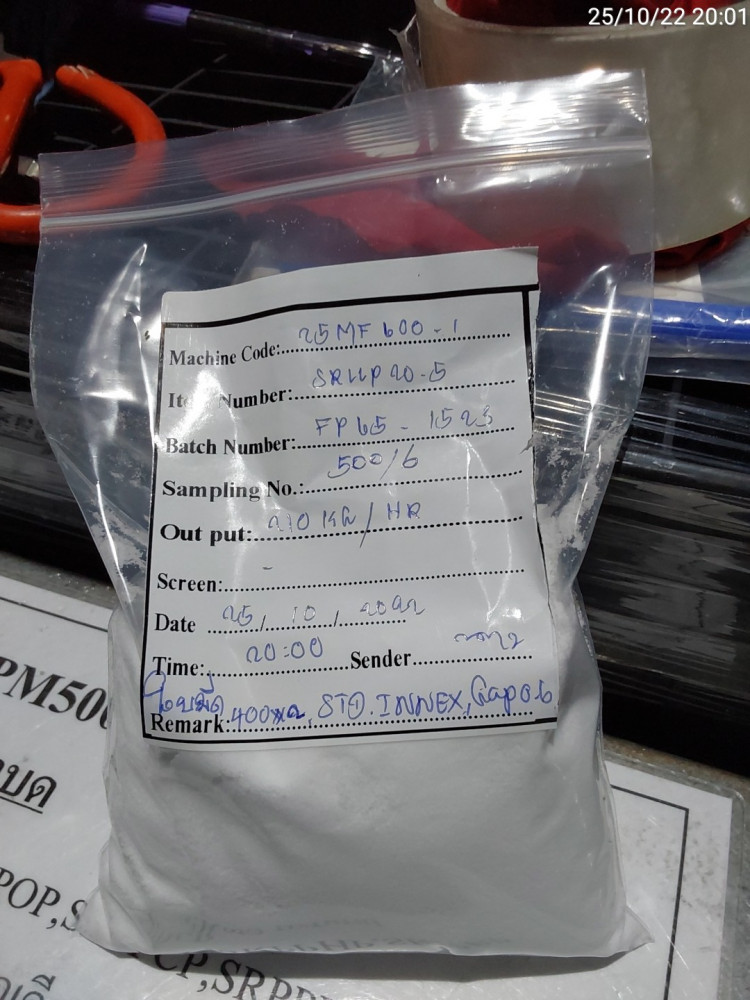 25/10/22 20:01
Machine Code: 25MF600-1
Item Number: SRUP20-5
Batch Number: FP65-1523
Sampling No.: 500/6
Out put: 210 KG/HR
Screen: -
Date 25/10/2022
Time: 20:00 Sender
ใบมีด
Remark: 400 STD.INNEX, Gap 0.6
PM500
บด
POP,S
CP,SRPP